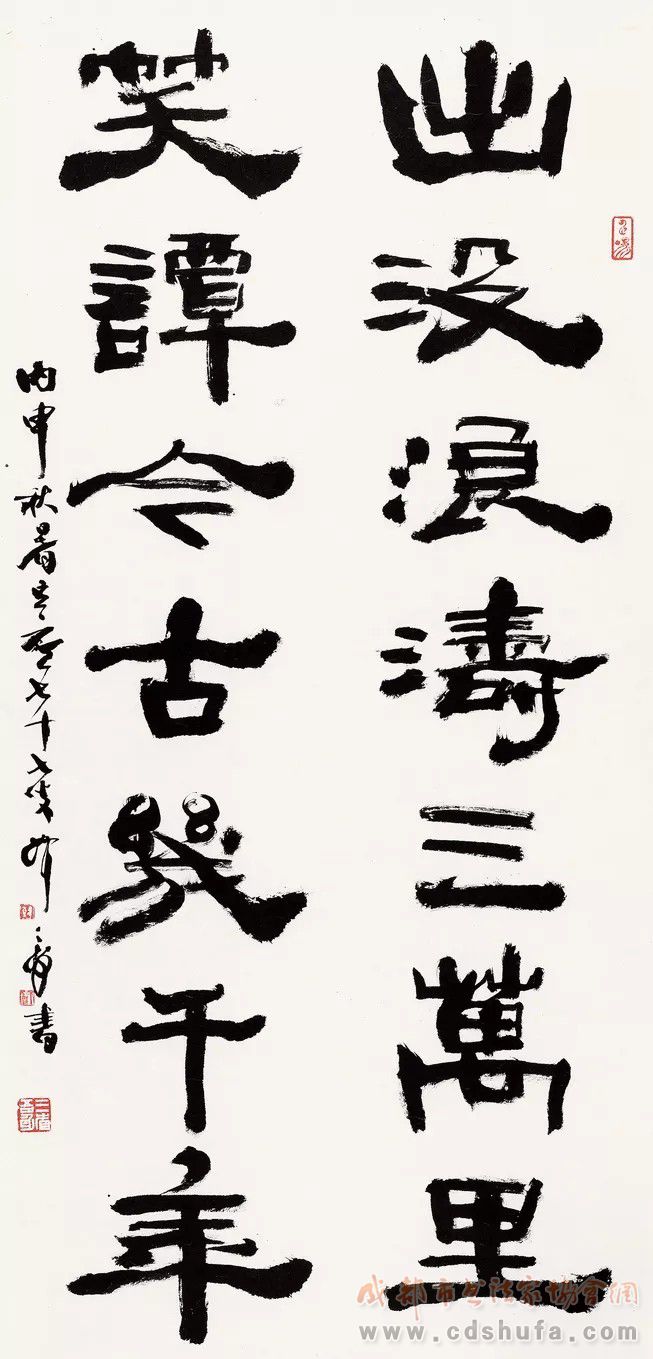 出没浪濤三萬里
笑譚今古幾千年
丙申秋暑
七十七叟
書
成都市书法家協會網
www.cdshufa.com